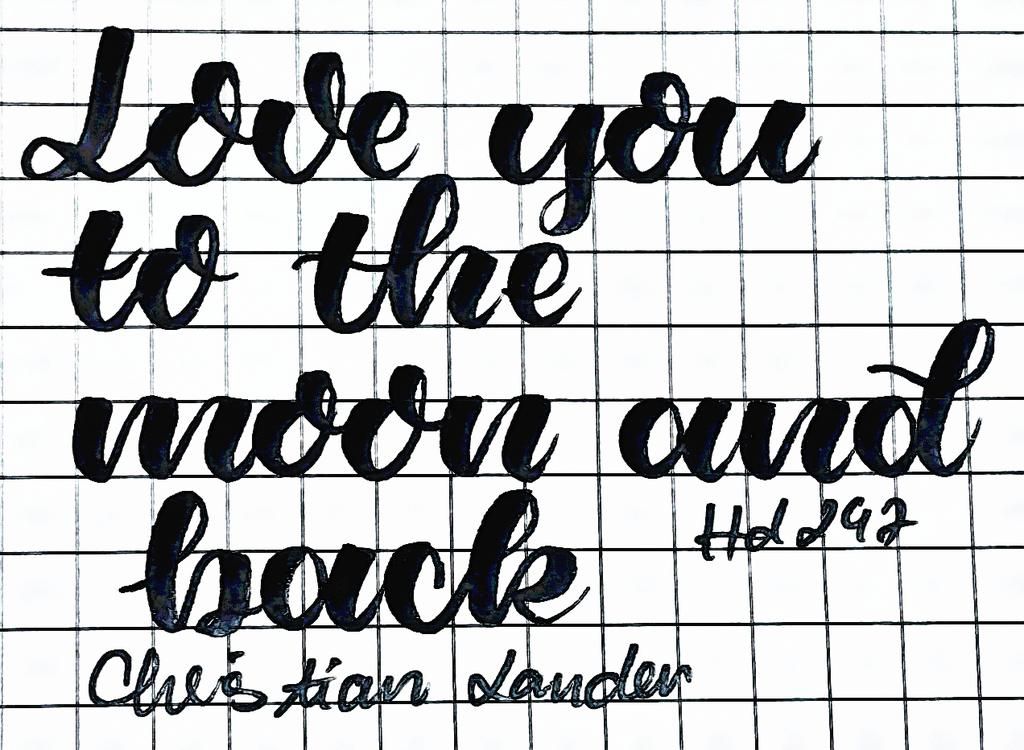 Love you
to the
moon and
back
Hd 297
Christian Lander